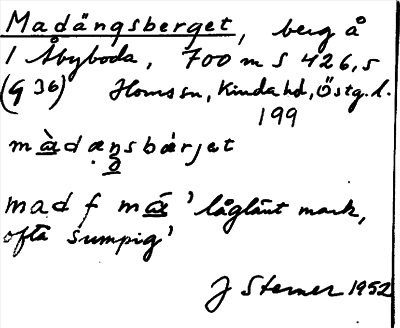 Madängsberget, berg å
1 Åbyboda, 700 m S 426,5
(G 36) Horns sn, Kinda hd, Östg. l.
199
màdænsbárjet
mad f má 'låglänt mark,
ofta sumpig'
J Sterner 1952